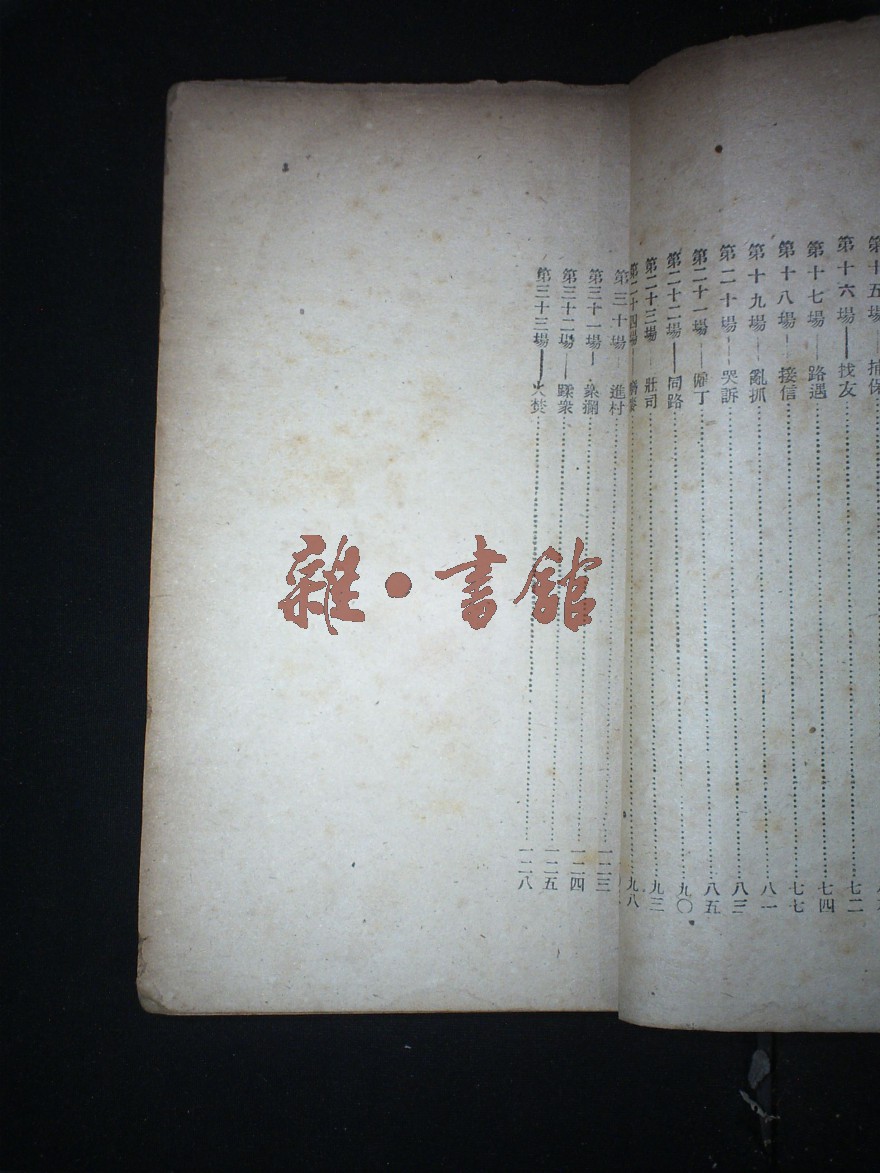 第十五場
第十六場——找友……七二
第十七場——路遇……七四
第十八場——接信……七七
第十九場——亂抓……八一
第二十場——哭訴……八三
第二十一場——僱丁……八五
第二十二場——同路……九〇
第二十三場——壯司……九三
第二十四場……九八
第三十場——進村……一二三
第三十一場——衆攔……一二四
第三十二場——蹂衆……一二五
第三十三場——火焚……一二八
雜·書館